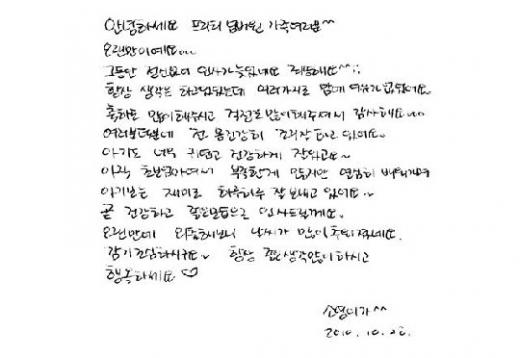 안녕하세요 프리티 넘버원 가족여러분^^
오랜만이예요...
그동안 정신없어 인사가늦었네요 죄송해요^^;;
항상 생각은 하고있었는데 여러가지로 맘에 여유가 없었어요
축하도 많이해주시고 걱정도많이해주셔서 감사해요...
여러분덕분에 전 몸건강히 조리잘 하고 있어요~
아기도 너무 귀엽고 건강하게 잘있구요~
아직 초보엄마여서 부족한게 많지만 열심히 배워가며
아기보는 재미로 하루하루 잘 보내고 있어요~
곧 건강하고 좋은모습으로 인사드릴게요~
오랜만에 외출해보니 날씨가 많이추워졌네요.
감기조심하시구요~ 항상 좋은생각많이하시고
행복하세요 ♡
소영이가^^
2010. 10.